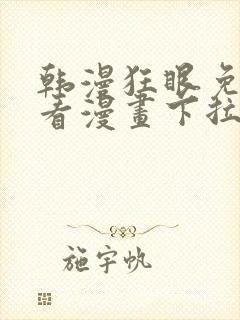 韩漫狂眼免
看漫畫下拉
施宇帆